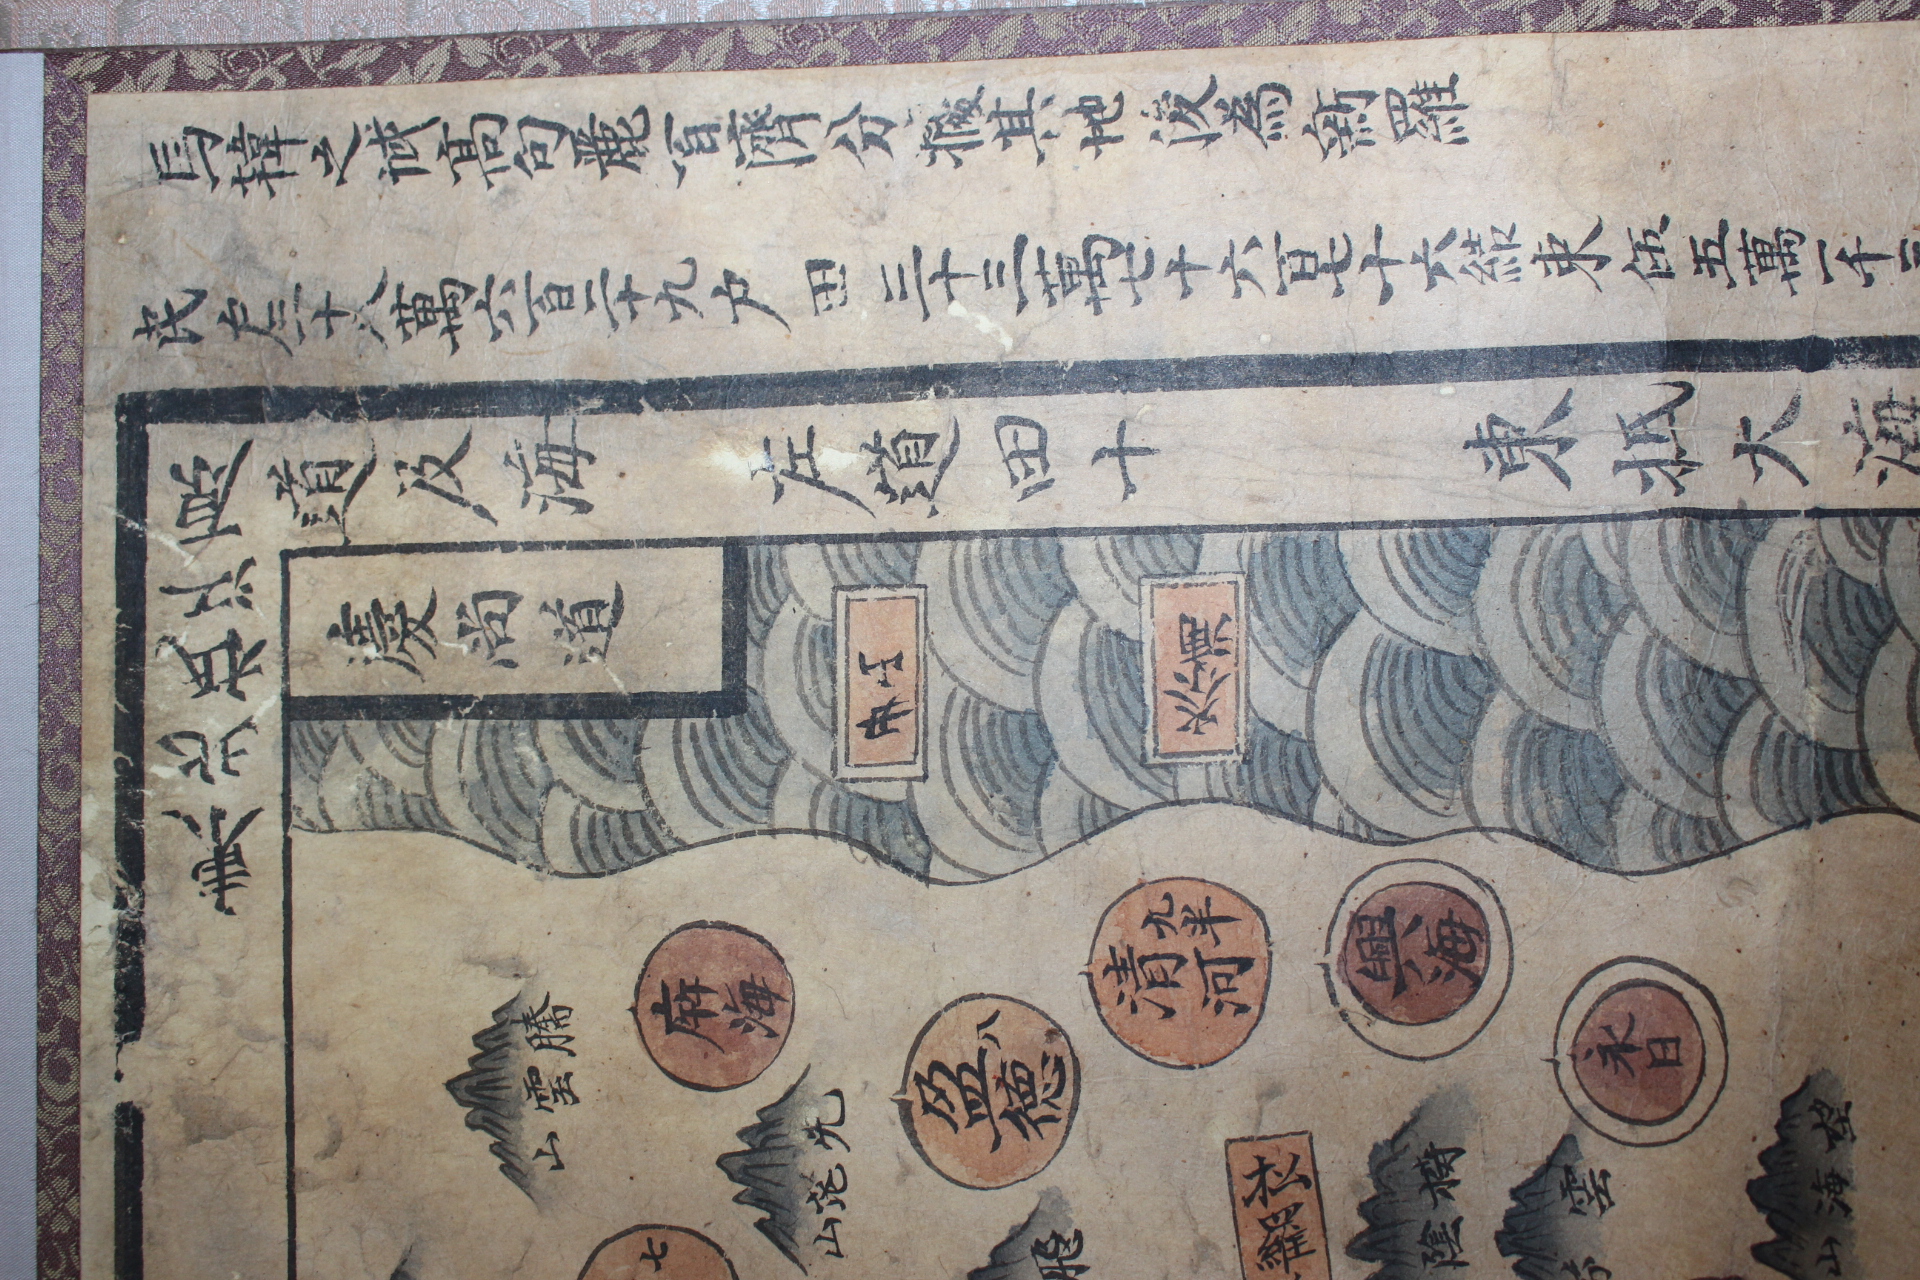 馬韓之域高句麗百濟分據其地後為新羅
民户三十八萬六百二十九户田三十三萬七十六百七十六結束伍五萬一千三
東北抵江原
道及海
左道田十
東抵大海
慶尚道
騰雲山
七
麻海
先芘山
丑山
盈德
八
飛
清河
九半
松羅
興海
陰
雲
永日
望海山